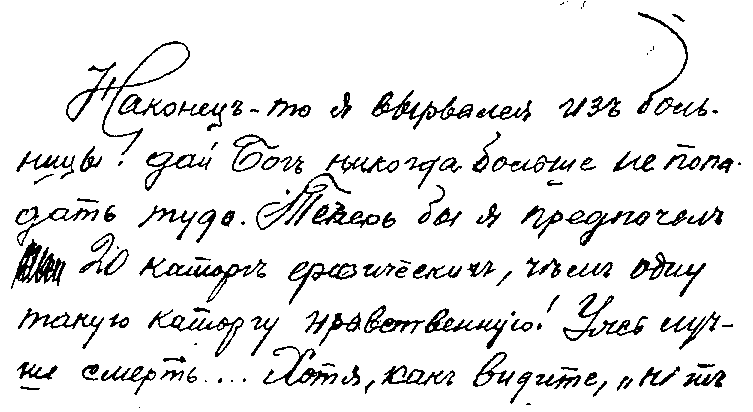 Наконецъ-то я вырвался изъ боль-
ницы! Дай Богъ никогда больше не попа-
дать туда. Теперь бы я предпочелъ
20 каторгъ физическихъ, чѣмъ одну
такую каторгу нравственную! Ужъ луч-
ше смерть... Хотя, какъ видите, „нѣтъ